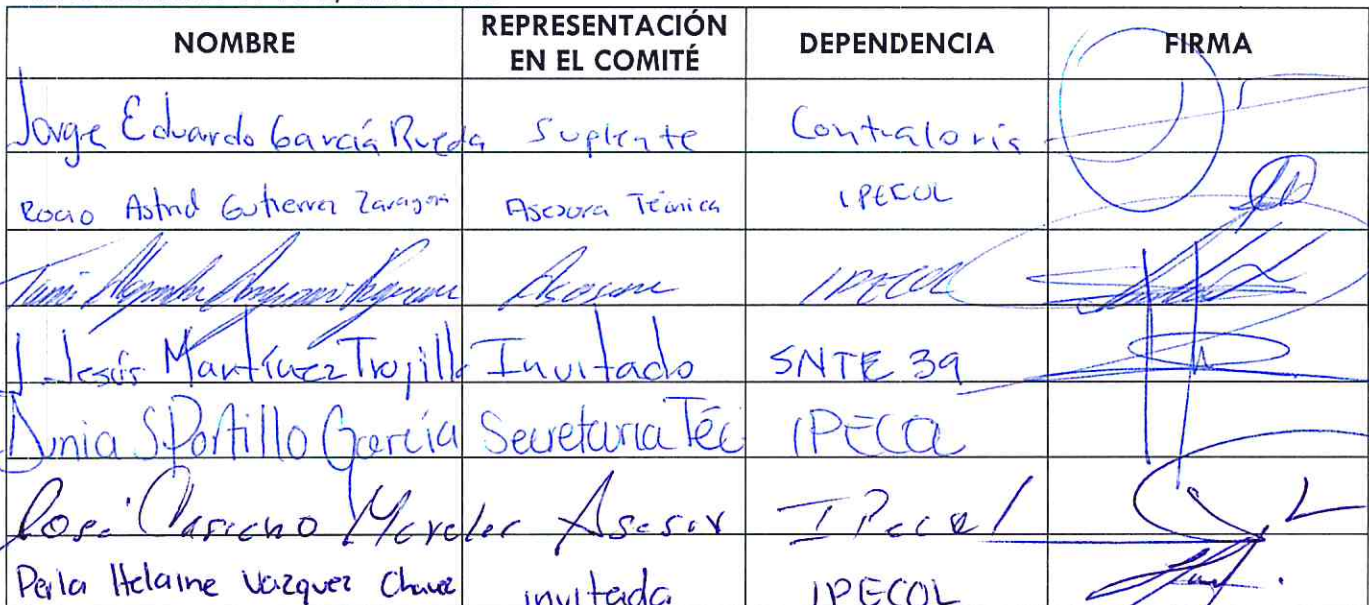 NOMBRE REPRESENTACIÓN EN EL COMITÉ DEPENDENCIA FIRMA
Jorge Eduardo García Rueda Suplente Contraloria
Rocio Astrid Gutierrez Zaragoza Asesora Técnica IPECOL
Asesora IPECOL
J. Jesús Martínez Trujillo Invitado SNTE 39
Dunia S Portillo García Secretaria Téc IPECOL
José Asesor IPecol
Perla Helaine Vazquez Chavez invitada IPECOL